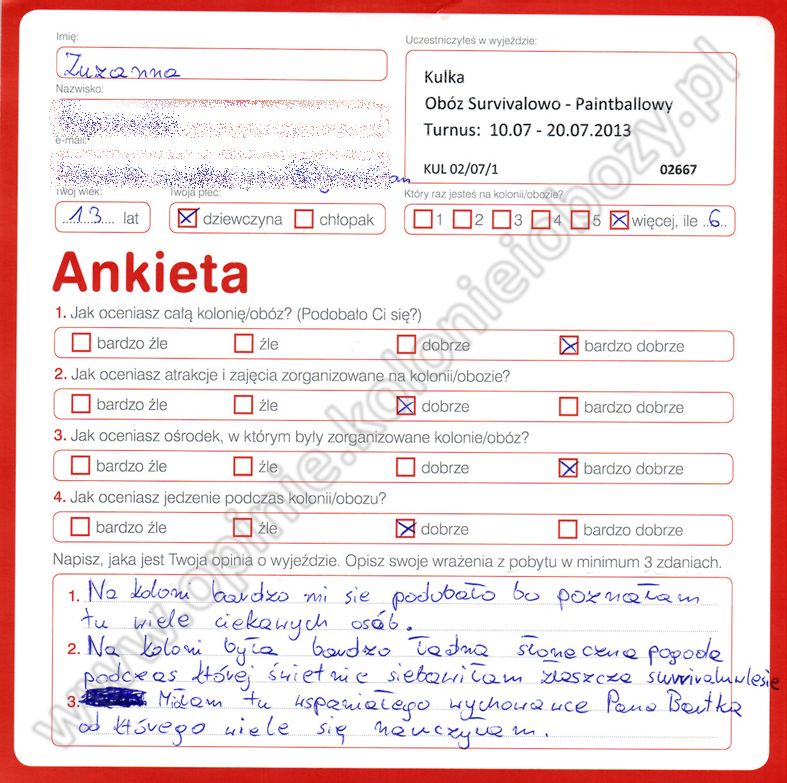 Imię:
Zuzanna
Nazwisko:
e-mail:
Twój wiek:
13 lat
Twoja płeć:
dziewczyna chłopak
Uczestniczyłeś w wyjeździe:
Kulka
Obóz Survivalowo - Paintballowy
Turnus: 10.07 - 20.07.2013
KUL 02/07/1 02667
Który raz jesteś na kolonii/obozie?
1 2 3 4 5 więcej, ile 6
Ankieta
1. Jak oceniasz całą kolonię/obóz? (Podobało Ci się?)
bardzo źle źle dobrze bardzo dobrze
2. Jak oceniasz atrakcje i zajęcia zorganizowane na kolonii/obozie?
bardzo źle źle dobrze bardzo dobrze
3. Jak oceniasz ośrodek, w którym były zorganizowane kolonie/obóz?
bardzo źle źle dobrze bardzo dobrze
4. Jak oceniasz jedzenie podczas kolonii/obozu?
bardzo źle źle dobrze bardzo dobrze
Napisz, jaka jest Twoja opinia o wyjeździe. Opisz swoje wrażenia z pobytu w minimum 3 zdaniach.
1. Na koloni bardzo mi sie podobało bo poznałam
tu wiele ciekawych osób.
2. Na koloni była bardzo ładna słoneczna pogoda
podczas której świetnie siebawiłam złaszcza survivalwlesie
3. Miałam tu wspaniałego wychowawce Pana Bartka
od którego wiele się nauczyłam.
www.opinie.kolonieiobozy.pl